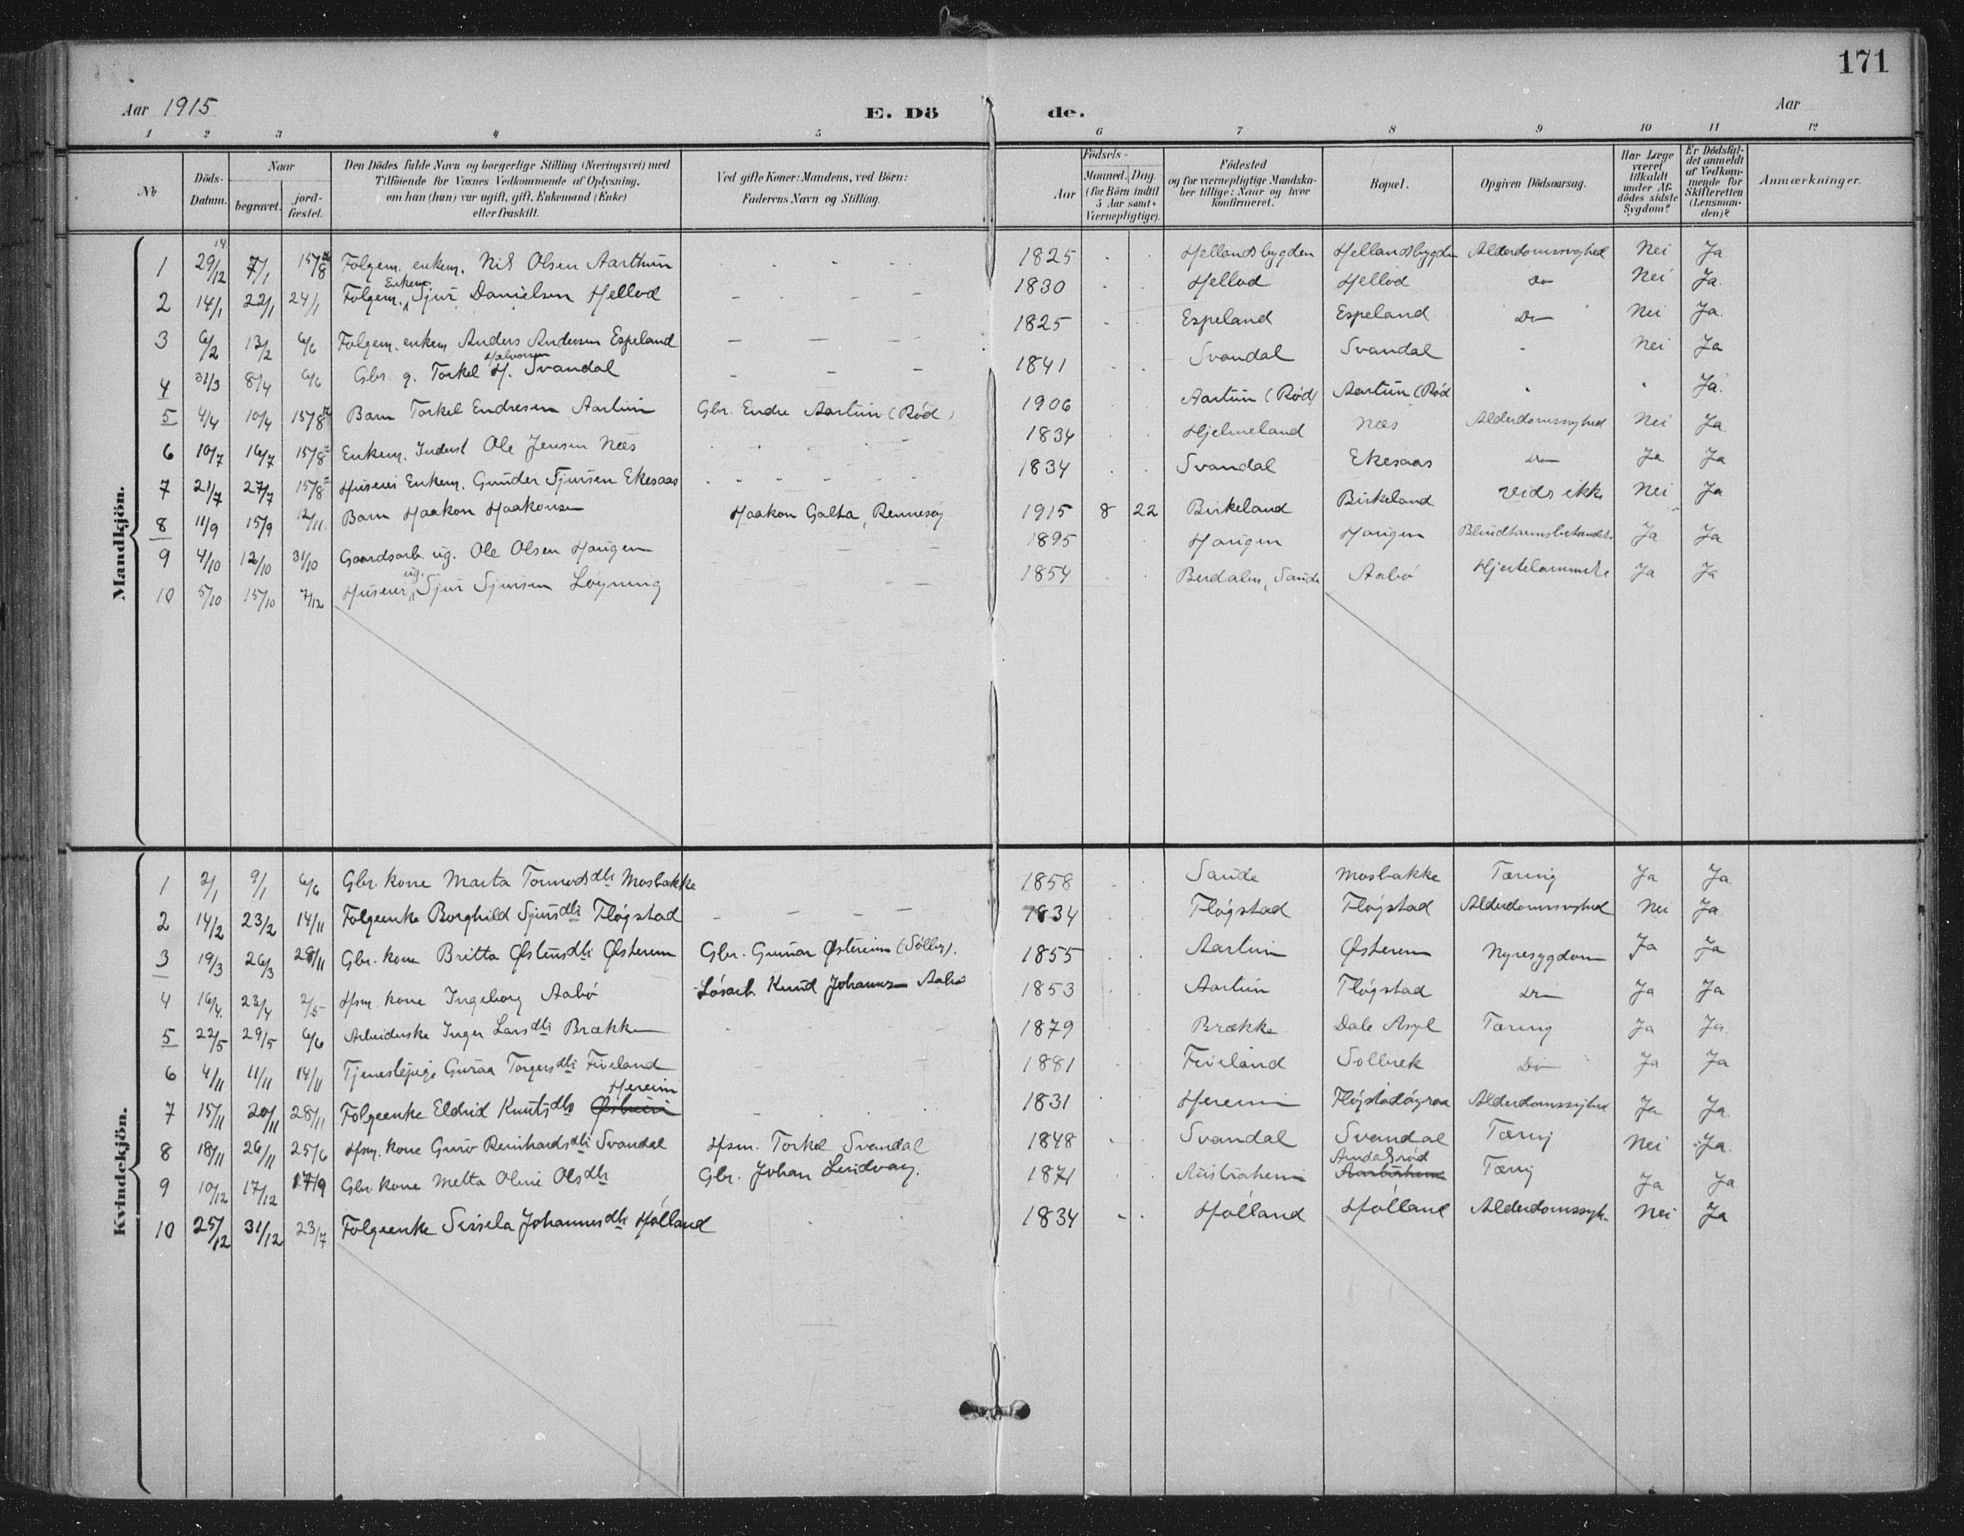 171
Aar 1915 E. Dö de. Aar
1 2 3 4 5 6 7 8 9 10 11 12
No
Döds-Datum.
Naar
begravet.
jord-fæstet.
Den Dödes fulde Navn og borgerlige Stilling (Næringsvei) med
Tilföiende for Voxnes Vedkommende af Oplysning,
om han (hun) var ugift, gift, Enkemand (Enke)
eller fraskilt.
Ved gifte Koner: Mandens, ved Börn:
Faderens Navn og Stilling.
Aar
Födsels-
Maaned. Dag.
(for Börn indtil
5 Aar samt
Værnepligtige).
Födested
og for værnepligtige Mandska-
ber tillige: Naar og hvor
konfirmeret.
Bopæl.
Opgiven Dödsaarsag.
Har Læge
været
tilkaldt
under Af-
dödes sidste
Sygdom?
Er Dödsfal-
det anmeldt
af Vedkom-
mende for
Skifteretten
(Lensman-
den)?
Anmærkninger.
Mandkjön.
1 29/12 14 7/1 15/8 Folgem. enkem. Nils Olsen Aarthun - - - - 1825 Hellandsbygden Hellandsbygden Alderdomssvghed Nei Ja
2 14/1 22/1 24/1 Folgem. Enkem. Sjur Danielsen Hellod - - - - 1830 Hellod Hellod Do Nei Ja.
3 6/2 13/2 6/6 Folgem. enkem Anders Andersen Espeland - - - - 1825 Espeland Espeland Do Nei Ja.
4 31/3 8/4 6/6 Gbr. g. Torkel H. Halvorsen Svandal - - - - 1841 Svandal Svandal - Nei Ja
5 4/4 10/4 15/8 Barn Torkel Endresen Aartun Gbr. Endre Aartun (Rød) 1906 Aartun (Rød) Aartun (Rød Ja.
6 10/7 16/7 15/8 Enkem. Inderst Ole Jensen Næs 1834 Hjelmeland Næs Alderdomssvghed Nei Ja
7 21/7 27/7 15/8 Huseier Enkem. Gunder Sjursen Ekesaas 1834 Svandal Ekesaas Do Ja Ja
8 11/9 15/9 12/11 Barn Haakon Haakonsen Haakon Galta, Rennesøy 1915 8 22 Birkeland Birkeland Vides ikke Nei Ja
9 4/10 12/10 31/10 Gaardsarb. ug. Ole Olsen Haugen - - - 1895 Haugen Haugen Ja Ja
10 5/10 15/10 7/12 Huseier, ug. Sjur Sjursen Løyning 1854 Berdalen, Sande Aabø Ja Ja
Kvindekjön.
1 2/1 9/1 6/6 Gbr. kone Marta Tormodsdtr Mosbakke 1858 Sande Mosbakke Tæring Ja Ja
2 14/2 23/2 14/11 Folgeenke Borghild Sjursdtr Fløgstad - - - - 1834 Fløgstad Fløgstad Alderdomssvghed Nei Ja
3 19/3 26/3 28/11 Gbr. kone Britta Østensdtr Østerem Gbr. Gunnar Østreim (Solberg). 1855 Aartun Østerem Nyresygdom Ja Ja
4 16/4 23/4 2/5 Hsm. kone Ingeborg Aabø Løsarb. Knud Johannsen Aabø 1853 Aartun Fløgstad Do Ja Ja
5 22/5 29/5 6/6 Arbeiderske Inger Larsdtr Brække 1879 Brække Dale Asyl Tæring Ja Ja
6 4/11 11/11 14/11 Tjenestepige Guraa Torgersdtr Fiveland 1881 Fiveland Solbrek Do Ja Ja
7 15/11 20/11 28/11 Folgeenke Eldrid Knutsdtr Hereim 1831 Hereim Alderdomssvghed Ja Ja
8 18/11 26/11 25/6 Hsm. kone Guro Reinhardsdtr Svandal Hsm. Torkel Svandal 1848 Svandal Svandal Tæring Nei Ja.
9 10/12 17/12 17/9 Gbr. kone Metta Oline Olsdtr Gbr. Johan Lindvay. 1871 Tæring Ja Ja
10 25/12 31/12 23/7 Folgeenke Sissela Johannesdtr Hølland 1834 Hølland Hølland Alderdomssvgh. Nei Ja